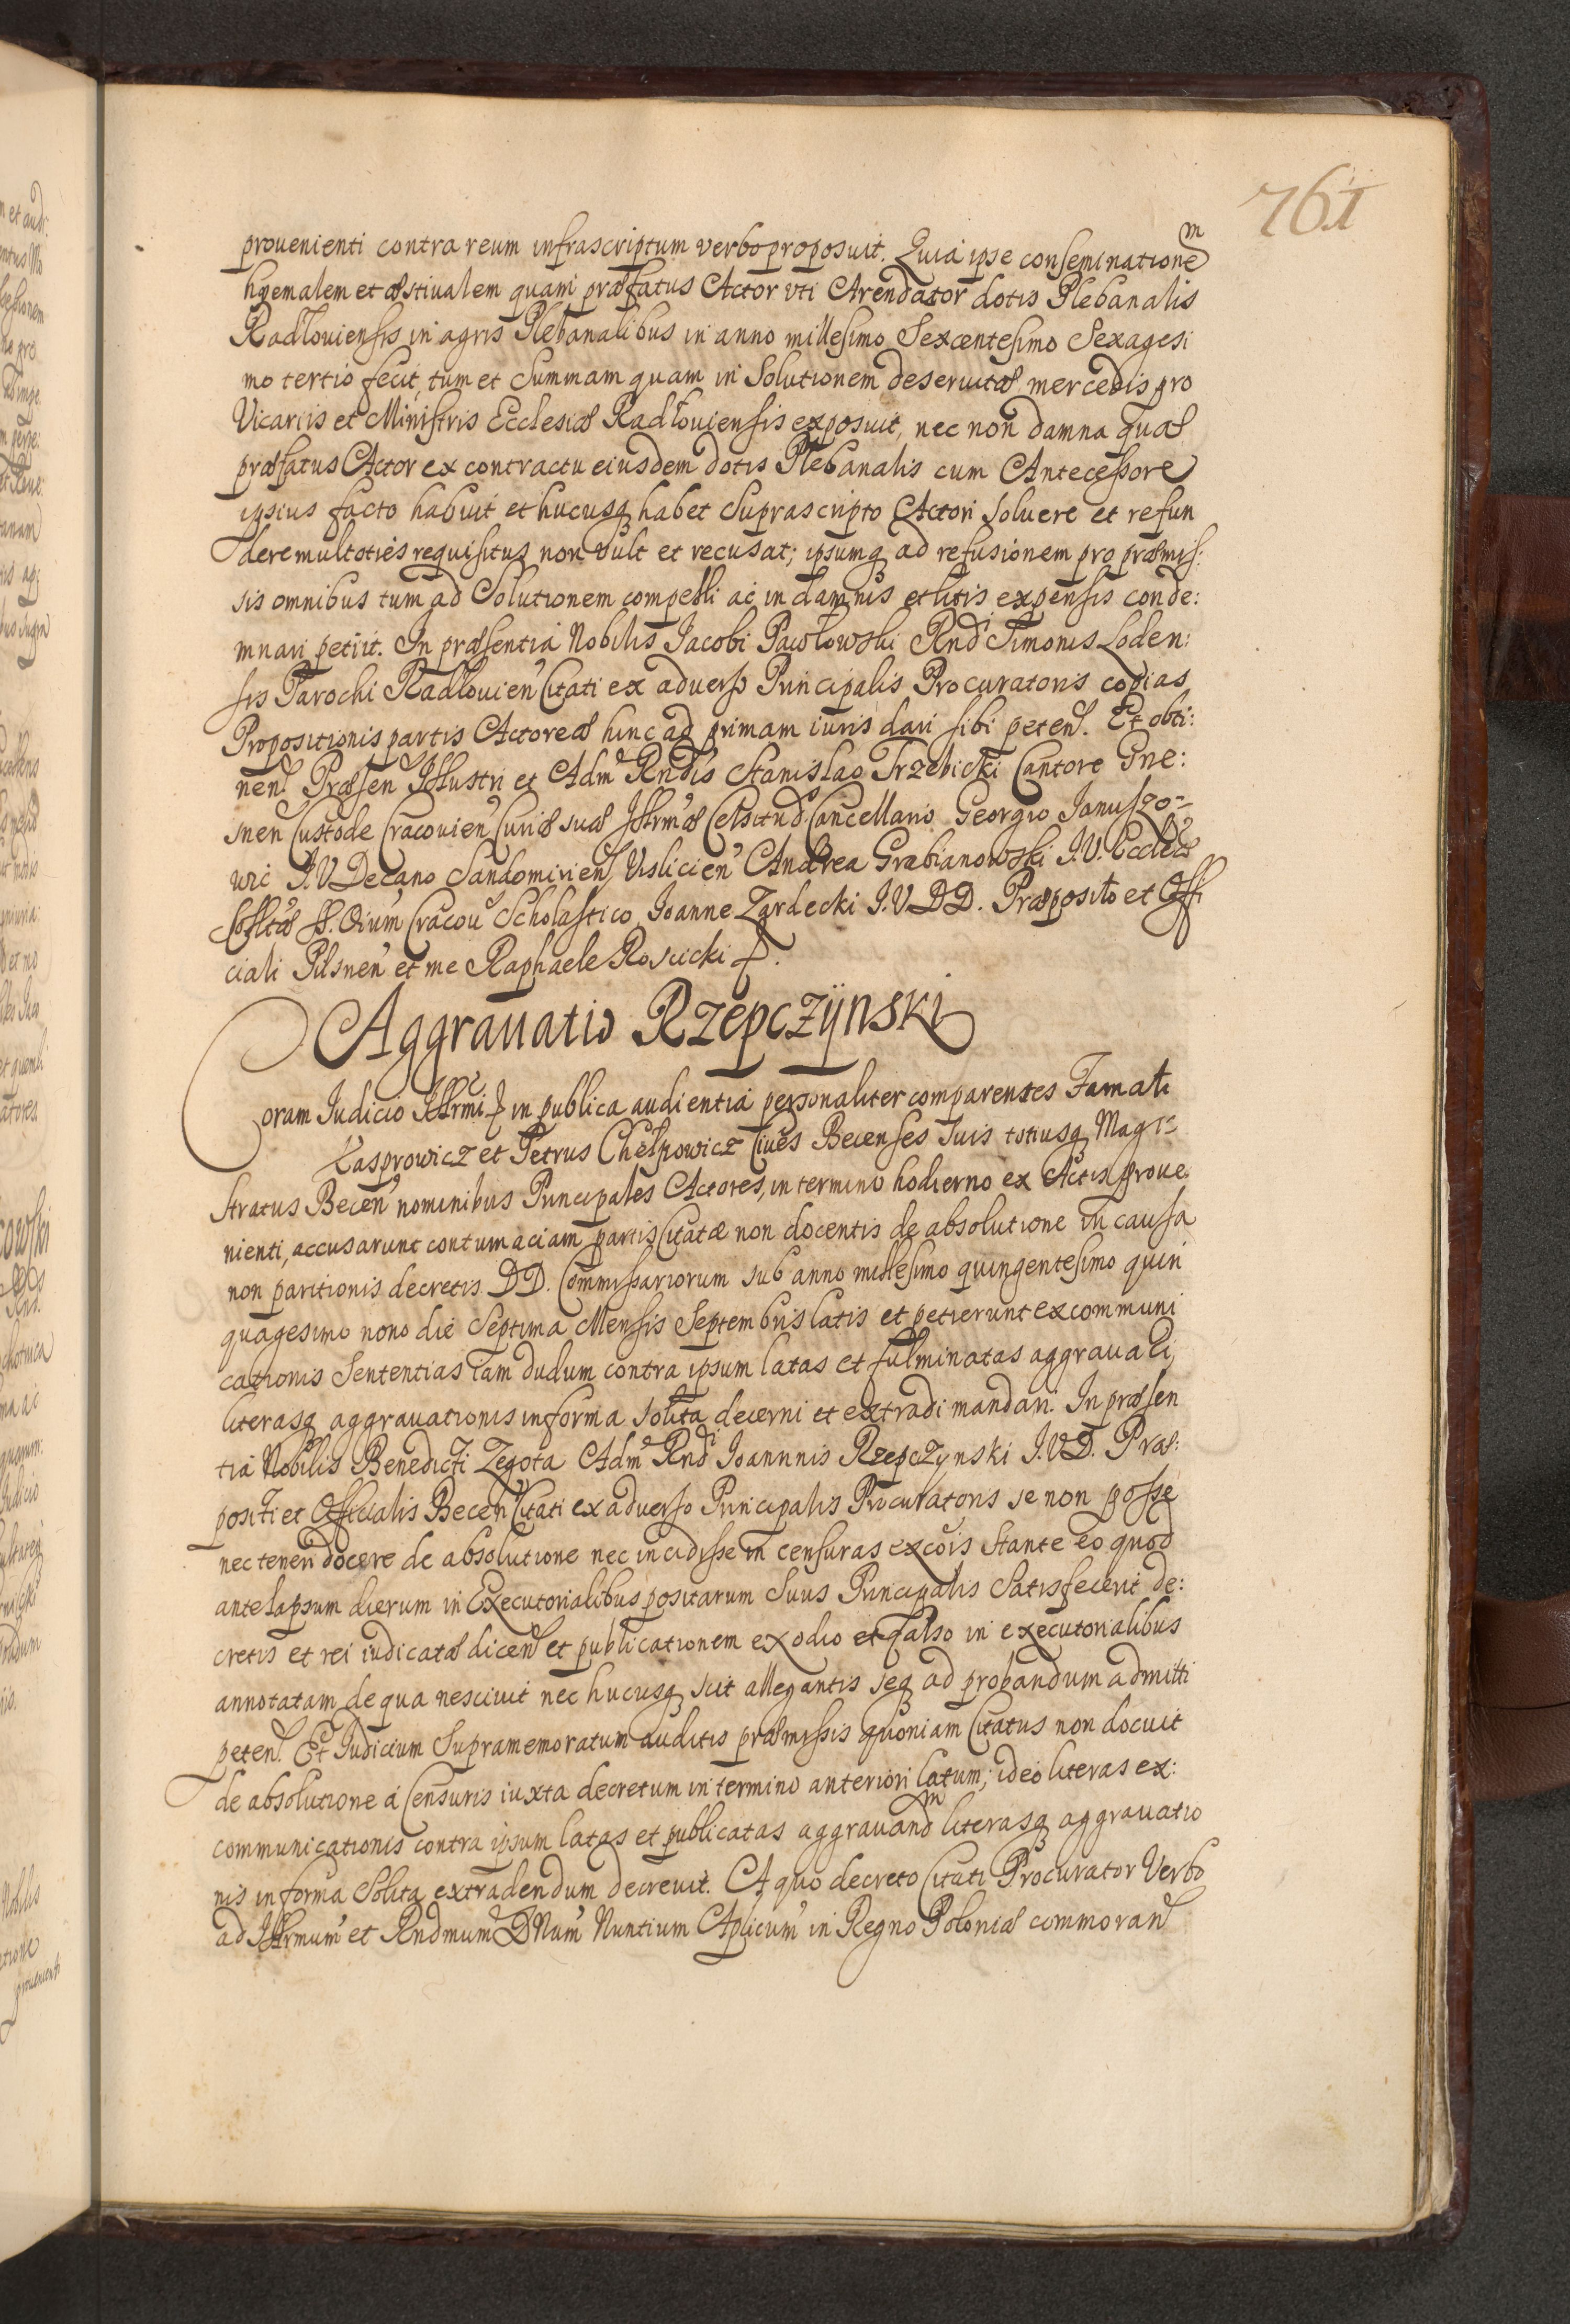 761
prouenienti contra reum infrascriptum verbo proposuit. Quia ipse conseminatione͠m
hyemalem et æstiualem quam præfatus Actor vti Arendator dotis Plebanalis
Radłouiensis in agris Plebanalibus in anno millesimo Sexcentesimo Sexagesi
mo tertio fecit, tum et Summam quam in Solutionem deseruitæ mercedis pro
Vicariis et Ministris Ecclesiæ Radłouiensis exposuit, nec non damna quæ
præfatus Actor ex contractu eiusdem dotis Plebanalis cum Antecessore
ipsius facto habuit et hucusq habet Suprascripto Actori soluere et refun
dere multoties requisitus non vult et recusat; ipsumq ad refusionem pro præmis:
sis omnibus tum ad Solutionem compelli ac in damnis et litis expensis conde:
mnari petiit. In præsentia Nobilis Jacobi Pawłowski Rndi Simonis Loden:
sis Parochi Radłouien Citati ex aduerso Principalis Procuratoris copias
Propositionis partis Actoreæ hinc ad primam iuris dari sibi peten. Et obti:
nen. Præsen Illustri et Adm Rndis Stanislao Trzebicki Cantore Gne:
snen Custode Cracouien Curiæ suæ Illrmæ Celsitnd Cancellario Georgio Januszo=
wic J.V.Decano Sandomirien, Vislicien Andrea Grabianowski J.V. Ecclæ
Colltæ SS. Oium Cracou Scholastico, Joanne Zardecki J.V.DD. Præposito et Offi
ciali Pilsnen et me Raphaele Roscicki
Aggrauatio Rzepczÿnski
Coram Judicio Illrmi in publica audientia personaliter comparentes Famati
Kasprowicz et Petrus Chełpowicz Ciues Becenses suis totiusq Magi=
stratus Becen nominibus Principales Actores, in termino hodierno ex Actis proue
nienti, accusarunt contumaciam partis Citatæ non docentis de absolutione in causa
non paritionis decretis DD. Commissariorum sub anno millesimo quingentesimo quin
quagesimo nono die Septima Mensis Septembris latis et petierunt excommuni
cationis Sententias iam dudum contra ipsum latas et fulminatas aggrauari,
literasq aggrauationis in forma solita decerni et extradi mandari. In præsen
tia Nobilis Benedicti Zegota Adm Rndi Joannnis Rzepczynski J.V.D. Præ:
positi et Officialis Becen Citati ex aduerso Principalis Procuratoris se non posse
nec teneri docere de absolutione nec incidisse in censuras excois stante eo quod
ante lapsum dierum in Executorialibus positarum Suus Principalis Satisfecerit de:
cretis et rei iudicatæ dicen et publicationem ex odio et falso in executorialibus
annotatam de qua nesciuit nec hucusq scit allegantis seq ad probandum admitti
peten. Et Judicium Supramemoratum auditis præmissis quoniam Citatus non docuit
de absolutione a Censuris iuxta decretum in termino anteriori latum; ideo literas ex:
communicationis contra ipsum latas et publicatas aggrauandm literasq aggrauatio
nis in forma solita extradendum decreuit. A quo decreto Citati Procurator Verbo
ad Illrmum et Rndmum DNum Nuntium Aplicum in Regno Poloniæ commoran